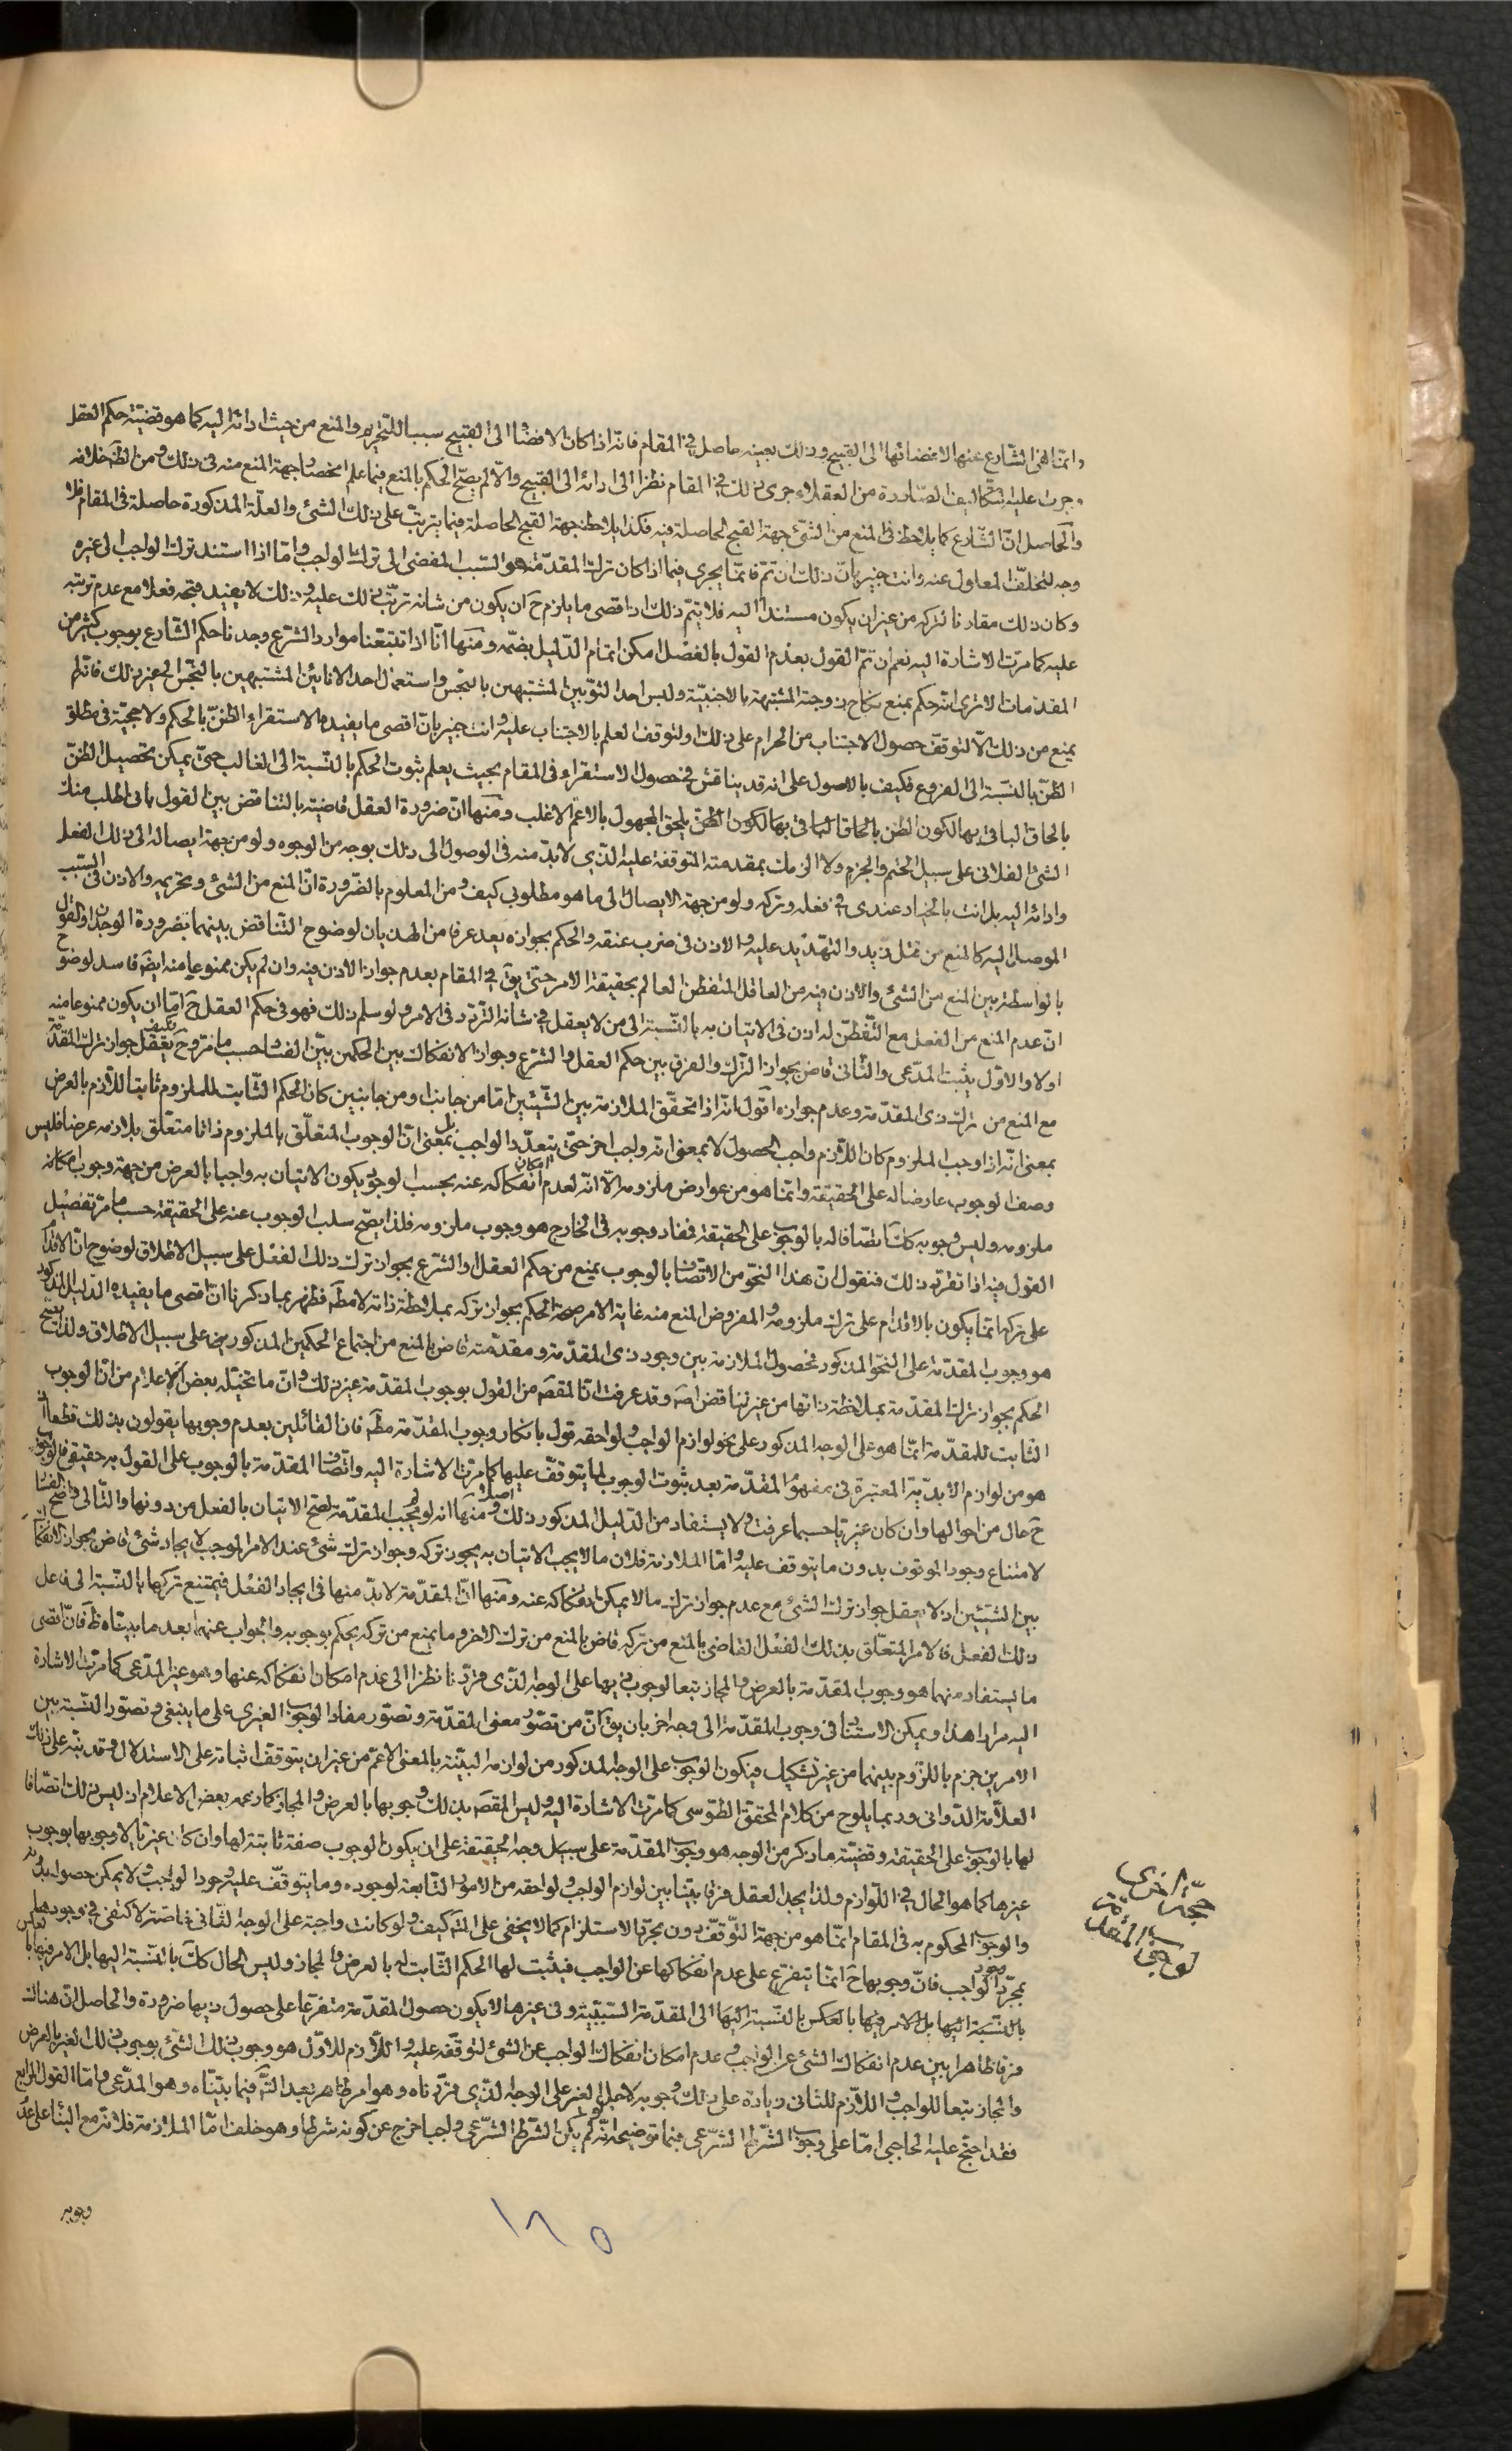 وانما نهى الشارع عنها لافضائها الى القبيح وذلك بعينه حاصل فى المقام فانه اذا كان الافضاء الى القبيح سببا للتحريم والمنع من حيث ادائه اليه كما هو قضية حكم العقل
وجرت عليه التكاليف الصادرة من العقلاء جرى ذلك فى المقام نظرا الى ادائه الى القبيح والا لم يصح الحكم بالمنع فيما علم انحصار جهة المنع منه فى ذلك ومن الظ خلافه
والحاصل ان الشارع كما يلاحظ فى المنع من الشئ جهة القبح الحاصلة فيه فكذا يلاحظ جهة القبح الحاصلة فيما يترتب على ذلك الشئ والعلة المذكورة حاصلة فى المقام فلا
وجه لتخلف المعلول عنه وانت خبير بان ذلك ان تم فانما يجرى فيما اذا كان ترك المقدمة هو السبب المفضى الى ترك الواجب واما اذا استند ترك الواجب الى غيره
وكان ذلك مقارنا لتركه من غير ان يكون مستندا اليه فلا يتم ذلك اذ اقصى ما يلزم ح ان يكون من شانه ترتب ذلك عليه وذلك لا يفيد قبحه فعلا مع عدم ترتبه
عليه كما مرت الاشارة اليه نعم ان تم القول بعدم القول بالفصل امكن اتمام الدليل بضمه ومنها انا اذا تتبعنا موارد الشرع وجدنا حكم الشارع بوجوب كثير من
المقدمات الا ترى انه حكم بمنع نكاح زوجته المشتبهة بالاجنبية ولبس احد الثوبين المشتبهين بالنجس واستعمال احد الانائين المشتبهين بالنجس الى غير ذلك فانه لم
يمنع من ذلك الا لتوقف حصول الاجتناب من الحرام على ذلك او لتوقف العلم بالاجتناب عليه وانت خبير بان اقصى ما يفيده الاستقراء الظن بالحكم ولا حجية فى مطلق
الظن بالنسبة الى الفروع فكيف بالاصول على انه قد يناقش فى حصول الاستقراء فى المقام بحيث يعلم ثبوت الحكم بالنسبة الى الغالب حتى يمكن تحصيل الظن
بالحاق الباقى بها لكون الظن بالحاق الباقى بها لكون الظن يلحق المجهول بالاعم الاغلب ومنها ان ضرورة العقل قاضية بالتناقض بين القول بانى اطلب منك
الشئ الفلانى على سبيل الحتم والجزم ولا الزمك بمقدمته المتوقفة عليه الذى لا بد منه فى الوصول الى ذلك بوجه من الوجوه ولو من جهة ايصاله الى ذلك الفعل
وادائه اليه بل انت بالخيار عندى فى فعله وتركه ولو من جهة الايصال الى ما هو مطلوبى كيف ومن المعلوم بالضرورة ان المنع من الشئ وتحريمه والاذن فى السبب
الموصل اليه كالمنع من قتل زيد والتهديد عليه والاذن فى ضرب عنقه والحكم بجوازه يعد عرفا من الهذيان لوضوح التناقض بينهما بضرورة الوجدان والقول
بالواسطة بين المنع من الشئ والاذن فيه من العاقل المتفطن العالم بحقيقة الامر حتى يق فى المقام بعدم جواز الاذن فيه وان لم يكن ممنوعا منه ايضا فاسد لوضوح
ان عدم المنع من الفعل مع التفطن له اذن فى الاتيان به بالنسبة الى من لا يعقل فى شانه التردد فى الامر ولو سلم ذلك فهو فى حكم العقل ح اما ان يكون ممنوعا منه
اولا والاول يثبت المدعى والثانى قاض بجواز الترك والفرق بين حكم العقل والشرع وجواز الانفكاك بين الحكمين بين الفساد حسب ما مر وح فكيف يعقل جواز ترك المقدمة
مع المنع من ترك ذى المقدمة وعدم جوازه اقول انه اذا تحقق الملازمة بين الشيئين اما من جانب او من جانبين كان الحكم الثابت للملزوم ثابتا للازم بالعرض
بمعنى انه اذا وجب الملزوم كان اللازم واجب الحصول لا بمعنى انه واجب اخر حتى يتعدد الواجب بل بمعنى ان الوجوب المتعلق بالملزوم ذاتا متعلق بلازمه عرضا فليس
وصف الوجوب عارضا له على الحقيقة وانما هو من عوارض ملزومه الا انه لعدم امكان انفكاكه عنه بحسب الوجود يكون الاتيان به واجبا بالعرض من جهة وجوب امكانه
ملزومه وليس وجوبه كك اتصافا له بالوجوب على الحقيقة فمفاد وجوبه فى الخارج هو وجوب ملزومه فلذا يصح سلب الوجوب عنه على الحقيقة حسب ما مر تفصيل
القول فيه اذا تقرر ذلك فنقول ان هذا النحو من الاتصاف بالوجوب يمنع من حكم العقل والشرع بجواز ترك ذلك الفعل على سبيل الاطلاق لوضوح ان الاقدام
على تركه انما يكون بالاقدام على ترك ملزومه والمفروض المنع منه غاية الامر صحة الحكم بجواز تركه بملاحظة ذاته لا مط فظهر بما ذكرنا ان اقصى ما يفيده الدليل المذكور
هو وجوب المقدمة على النحو المذكور فحصول الملازمة بين وجود ذى المقدمة ومقدمته قاض بالمنع من اجتماع الحكمين المذكورين على سبيل الاطلاق ولذا يصح
الحكم بجواز ترك المقدمة بملاحظة ذاتها من غير تناقض اصلا وقد عرفت ان المقصود من القول بوجوب المقدمة غير ذلك وان ما تخيله بعض الاعلام من ان الوجوب
الثابت للمقدمة انما هو على الوجه المذكور على نحو لوازم الواجب ولواحقه قول بانكار وجوب المقدمة مط فان القائلين بعدم وجوبها يقولون بذلك قطعا اذ
هو من لوازم الابدية المعتبرة فى مفهوم المقدمة بعد ثبوت الوجوب لما يتوقف عليها كما مرت الاشارة اليه واتصاف المقدمة بالوجوب على القول به حقيقى فالوجوب
ح حال من احوالها وان كان غيريا حسبما عرفت ولا يستفاد من الدليل المذكور ذلك اصلا ومنها انه لو لم يجب المقدمة لصح الاتيان بالفعل من دونها والتالى واضح الفساد
لامتناع وجود الموقوف بدون ما يتوقف عليه واما الملازمة فلان ما لا يجب الاتيان به يجوز تركه وجواز ترك شئ عند الامر الموجب لايجاد شئ قاض بجواز الانفكاك
بين الشيئين اذ لا يعقل جواز ترك الشئ مع عدم جواز ترك ما لا يمكن انفكاكه عنه ومنها ان المقدمة لا بد منها فى ايجاد الفعل فيمتنع تركها بالنسبة الى فاعل
ذلك الفعل فالامر المتعلق بذلك الفعل القاضى بالمنع من تركه قاض بالمنع من ترك الاخر وما يمنع من تركه يحكم بوجوبه والجواب عنهما بعد ما بيناه ظ فان اقصى
ما يستفاد منهما هو وجوب المقدمة بالعرض والمجاز تبعا لوجوب ذيها على الوجه الذى قررنا نظرا الى عدم امكان انفكاكه عنها وهو غير المدعى كما مرت الاشارة
اليه مرارا هذا ويمكن الاستناد فى وجوب المقدمة الى وجه اخر بان يق ان من تصور معنى المقدمة وتصور مفاد الوجوب الغيرى على ما ينبغى وتصور النسبة بين
الامرين جزم باللزوم بينهما من غير تشكيك فيكون الوجوب على الوجه المذكور من لوازمه البينة بالمعنى الاعم من غير ان يتوقف اثباته على الاستدلال وقد نبه على ذلك
العلامة الدوانى وربما يلوح من كلام المحقق الطوسى كما مرت الاشارة اليه وليس المقصود بذلك وجوبها بالعرض والمجاز كما زعمه بعض الاعلام اذ ليس ذلك اتصافا
لها بالوجوب على الحقيقة وقضية ما ذكر من الوجه هو وجوب المقدمة على سبيل وجه الحقيقة على ان يكون الوجوب صفة ثابتة لها وان كان غيريا لا وجوبها بوجوب
غيرها كما هو الحال فى اللوازم ولذا يجد العقل فرقا بينا بين لوازم الواجب ولواحقه من الامور التابعة لوجوده وما يتوقف عليه وجود الواجب ولا يمكن حصوله بدونه
والوجوب المحكوم به فى المقام انما هو من جهة التوقف دون مجرد الاستلزام كما لا يخفى على المتامل كيف ولو كانت واجبة على الوجه الثانى خاصة لاكتفى فى وجودها
بمجرد وجود الواجب فان وجوبها ح انما يتفرع على عدم انفكاكها عن الواجب فيثبت لها الحكم الثابت له بالعرض والمجاز وليس الحال كك بالنسبة اليها بل الامر فيها بالعكس
بالنسبة اليها بل الامر فيها بالعكس بالنسبة اليها الى المقدمة السببية وفى غيرها لا يكون حصول المقدمة متفرعا على حصول ذيها ضرورة والحاصل ان هناك
فرقا ظاهرا بين عدم انفكاك الشئ عن الواجب وعدم امكان انفكاك الواجب عن الشئ لتوقفه عليه واللازم للاول هو وجوب ذلك الشئ بوجوب ذلك الغير بالعرض
والمجاز تبعا للواجب واللازم للثانى زيادة على ذلك وجوبه لاجل الغير على الوجه الذى قررناه وهو امر ظاهر بعد التامل فيما بيناه وهو المدعى واما القول الرابع
فقد احتج عليه الحاجبى اما على وجوب الشرط الشرعى فبما توضيحه انه لو لم يكن الشرط الشرعى واجبا خرج عن كونه شرطا وهو خلف اما الملازمة فلانه مع البناء على عدم
وجوبه
حجة اخرى
لوجوب المقدمة
١٢٥